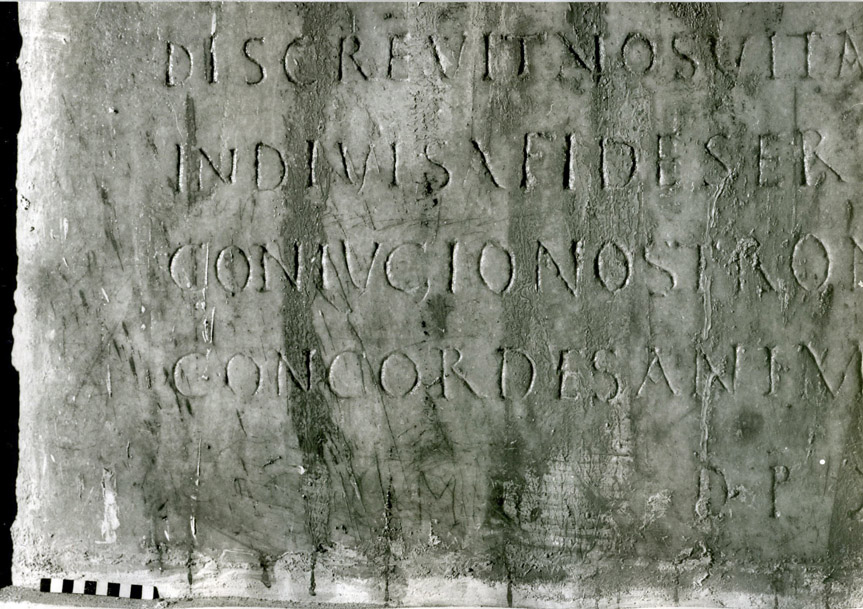 DISCREVITNOSVITA
INDIVISAFIDESER
CONIVGIONOSTRON
CONCORDESANIM
D P